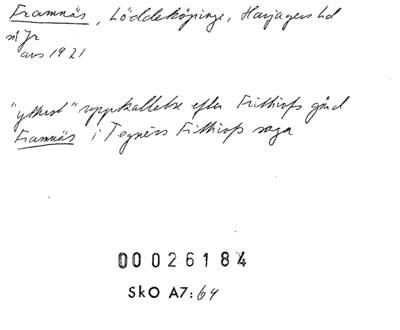 Framnäs, Löddeköpinge, Harjagers hd
avs 1921
uppkallelse efter Frithiofs gård
Framnäs i Tegnérs Frithiofs saga
00026184
SkO A7:64